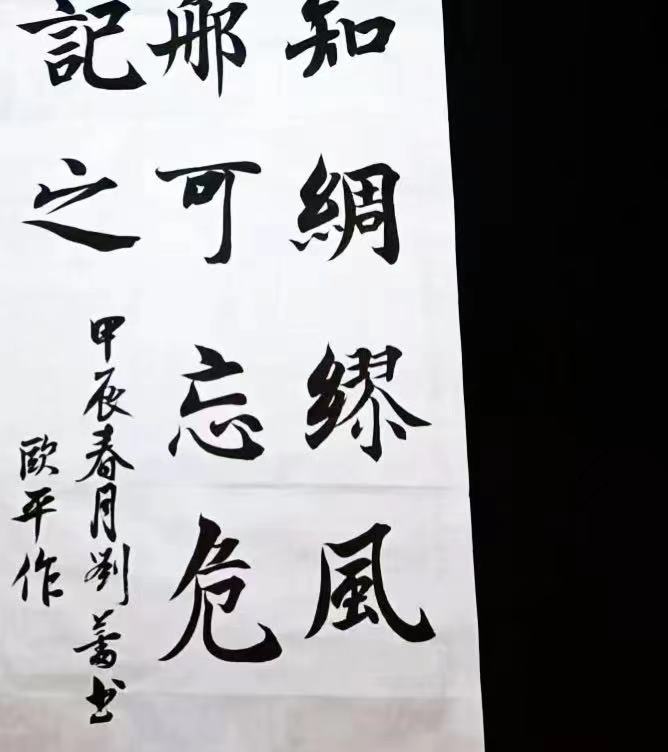 知綢繆風
那可忘危
記之
甲辰春月劉蕾书
歐平作